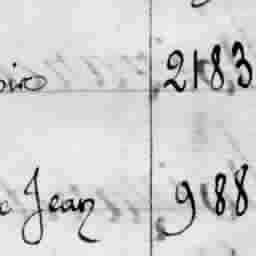 2183
Jean 988